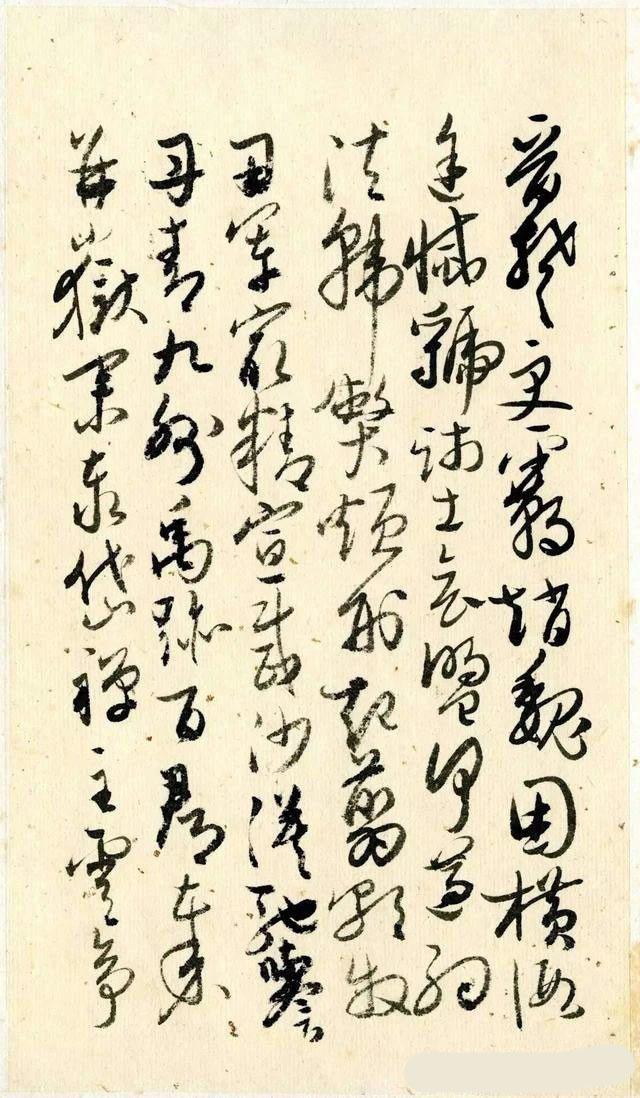 晉楚更霸趙魏困橫假
途滅虢踐土會盟何遵約
法韓弊煩刑起翦頗牧
用軍最精宣威沙漠馳譽
丹青九州禹跡百郡秦
并嶽宗泰岱禪主雲亭